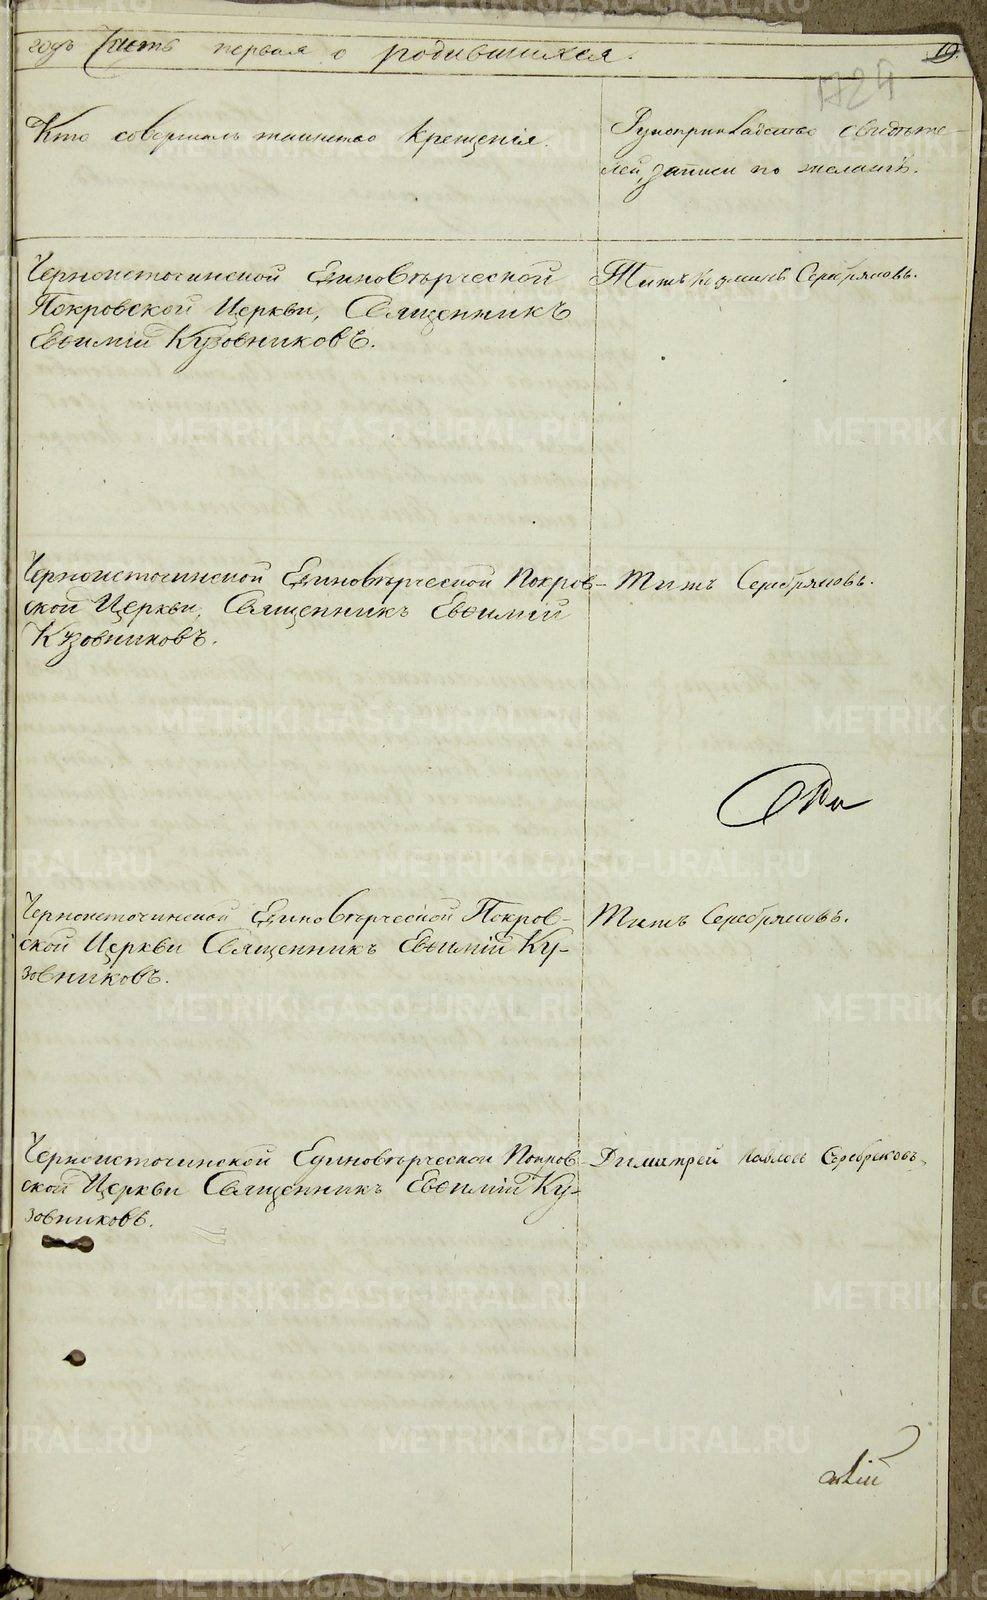 годъ Часть первая о родившихся.
19.
Кто совершалъ таинство крещенія.
Рукоприкладство свидѣте-
лей, записи по желанію.
Черноисточинской Единовѣрческой
Покровской Церкви, Священникъ
Евѳимій Кузовниковъ.
Титъ Козминъ Серебряковъ.
Черноисточинской Единовѣрческой Покров-
ской Церкви, Священникъ Евѳимій
Кузовниковъ.
Титъ Серебряковъ.
Черноисточинской Единовѣрческой Покров-
ской Церкви Священникъ Евѳимій Ку-
зовниковъ.
Титъ Серебряковъ.
Черноисточинской Единовѣрческой Покров-
ской Церкви Священникъ Евѳимій Ку-
зовниковъ.
Димитрей Павловъ Серебрековъ
METRIKI.GASO-URAL.RU